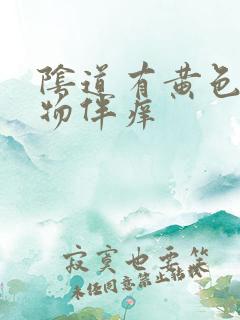 陰道有黄色
物伴痒
寂寞也要笑
未经同意禁止转载